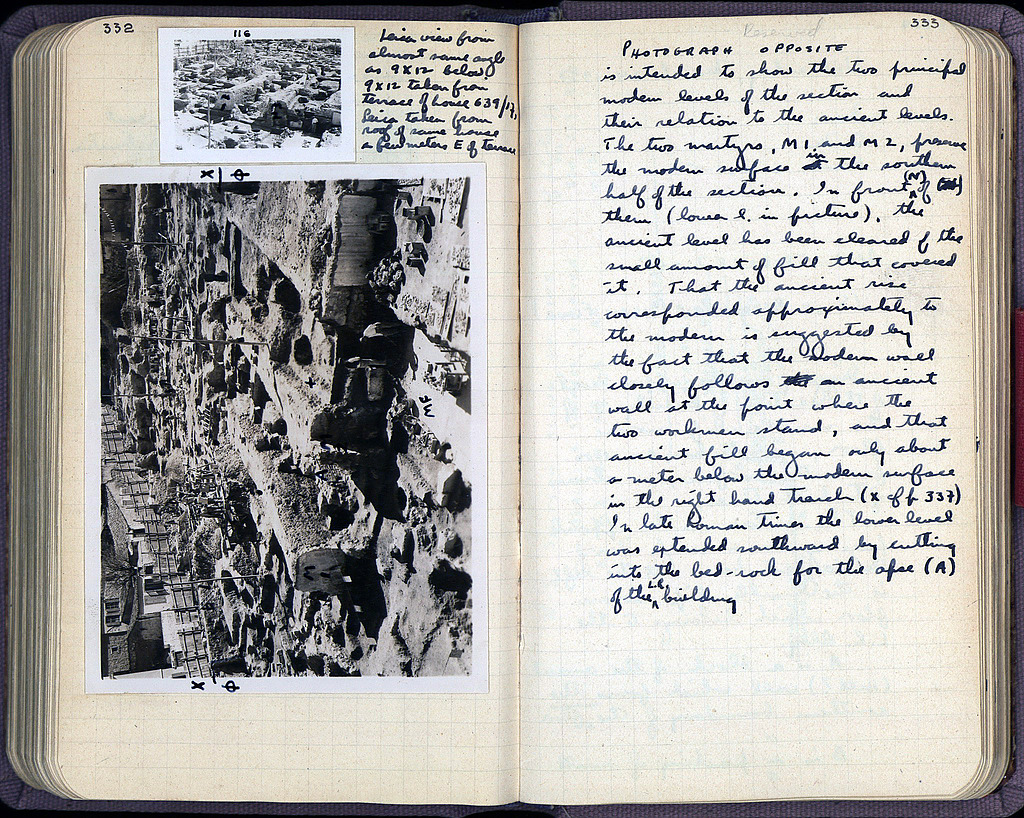 332
116
Leica view from
almost same angle
as 9X12 below.
9X12 taken from
terrace of house 639/17,
Leica taken from
roof of same house
a few meters E of terrace
X Φ
X Φ
333
Reserved
PHOTOGRAPH OPPOSITE
is intended to show the two principal
modern levels of the section and
their relation to the ancient levels.
The two martyrs, M1 and M2, preserve
the modern surface in the southern
half of the section. In front (N) of
them (lower l. in picture), the
ancient level has been cleared of the
small amount of fill that covered
it. That the ancient rise
corresponded approximately to
the modern is suggested by
the fact that the modern wall
closely follows an ancient
wall at the point where the
two workmen stand, and that
ancient fill began only about
a meter below the modern surface
in the right hand trench (X of p. 337)
In late Roman times the lower level
was extended southward by cutting
into the bed-rock for the apse (A)
of the L.R. building